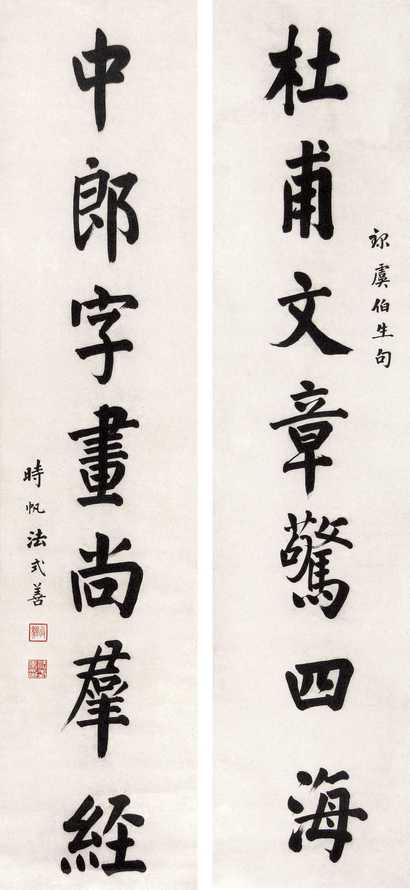 杜甫文章驚四海
錄虞伯生句
中郎字畫尚羣經
時帆法式善